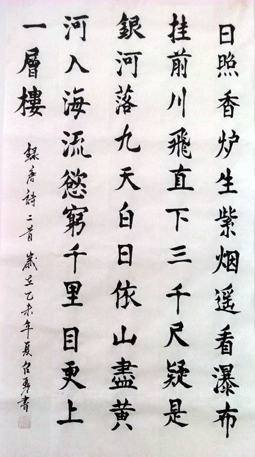 日照香炉生紫烟遥看瀑布
挂前川飛直下三千尺疑是
銀河落九天白日依山盡黄
河入海流慾窮千里目更上
一層樓
録唐詩二首 歲在乙未年夏 書